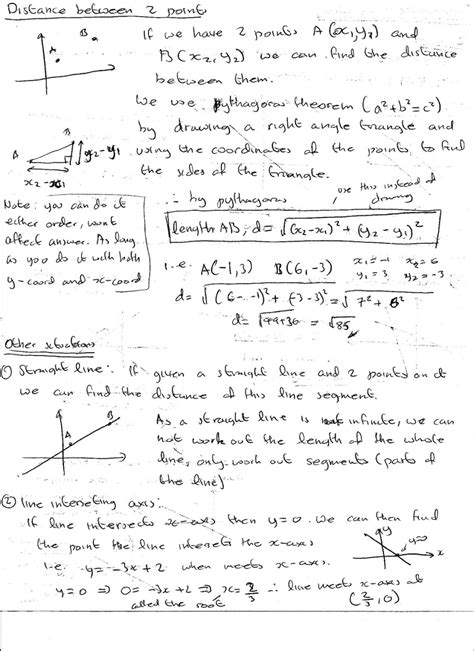 Distance between 2 points
If we have 2 points A(x₁,y₂) and
B(x₂,y₂) we can find the distance
between them.
A
B
We use Pythagoras theorem (a²+b²=c²)
by drawing a right angle triangle and
using the coordinates of the points to find
the sides of the triangle.
A
B
y₂-y₁
x₂-x₁
∴ by pythagoras
use this instead of
drawing
length AB, d = √(x₂-x₁)² + (y₂-y₁)²
Note: you can do it
either order, wont
affect answer. As long
as you do it with both
y-coord and x-coord
i.e. A(-1,3) B(6,-3)
x₁=-1 x₂=6
y₁=3 y₂=-3
d= √(6--1)² + (-3-3)² = √7² + 6²
d= √49+36 = √85
Other situations
① Straight line: If given a straight line and 2 points on it
we can find the distance of this line segment.
A
B
As a straight line is infinite, we can
not work out the length of the whole
line, only work out segments (parts of
the line)
② line interseting axis:
If line intersects x-axis then y=0. We can then find
the point the line intersets the x-axis
i.e. y=-3x+2 when meets x-axis.
y
y=0
x
y=0 ⇒ 0=-3x+2 ⇒ x=2/3 ∴ line meets x-axis at
called the root
(2/3,0)